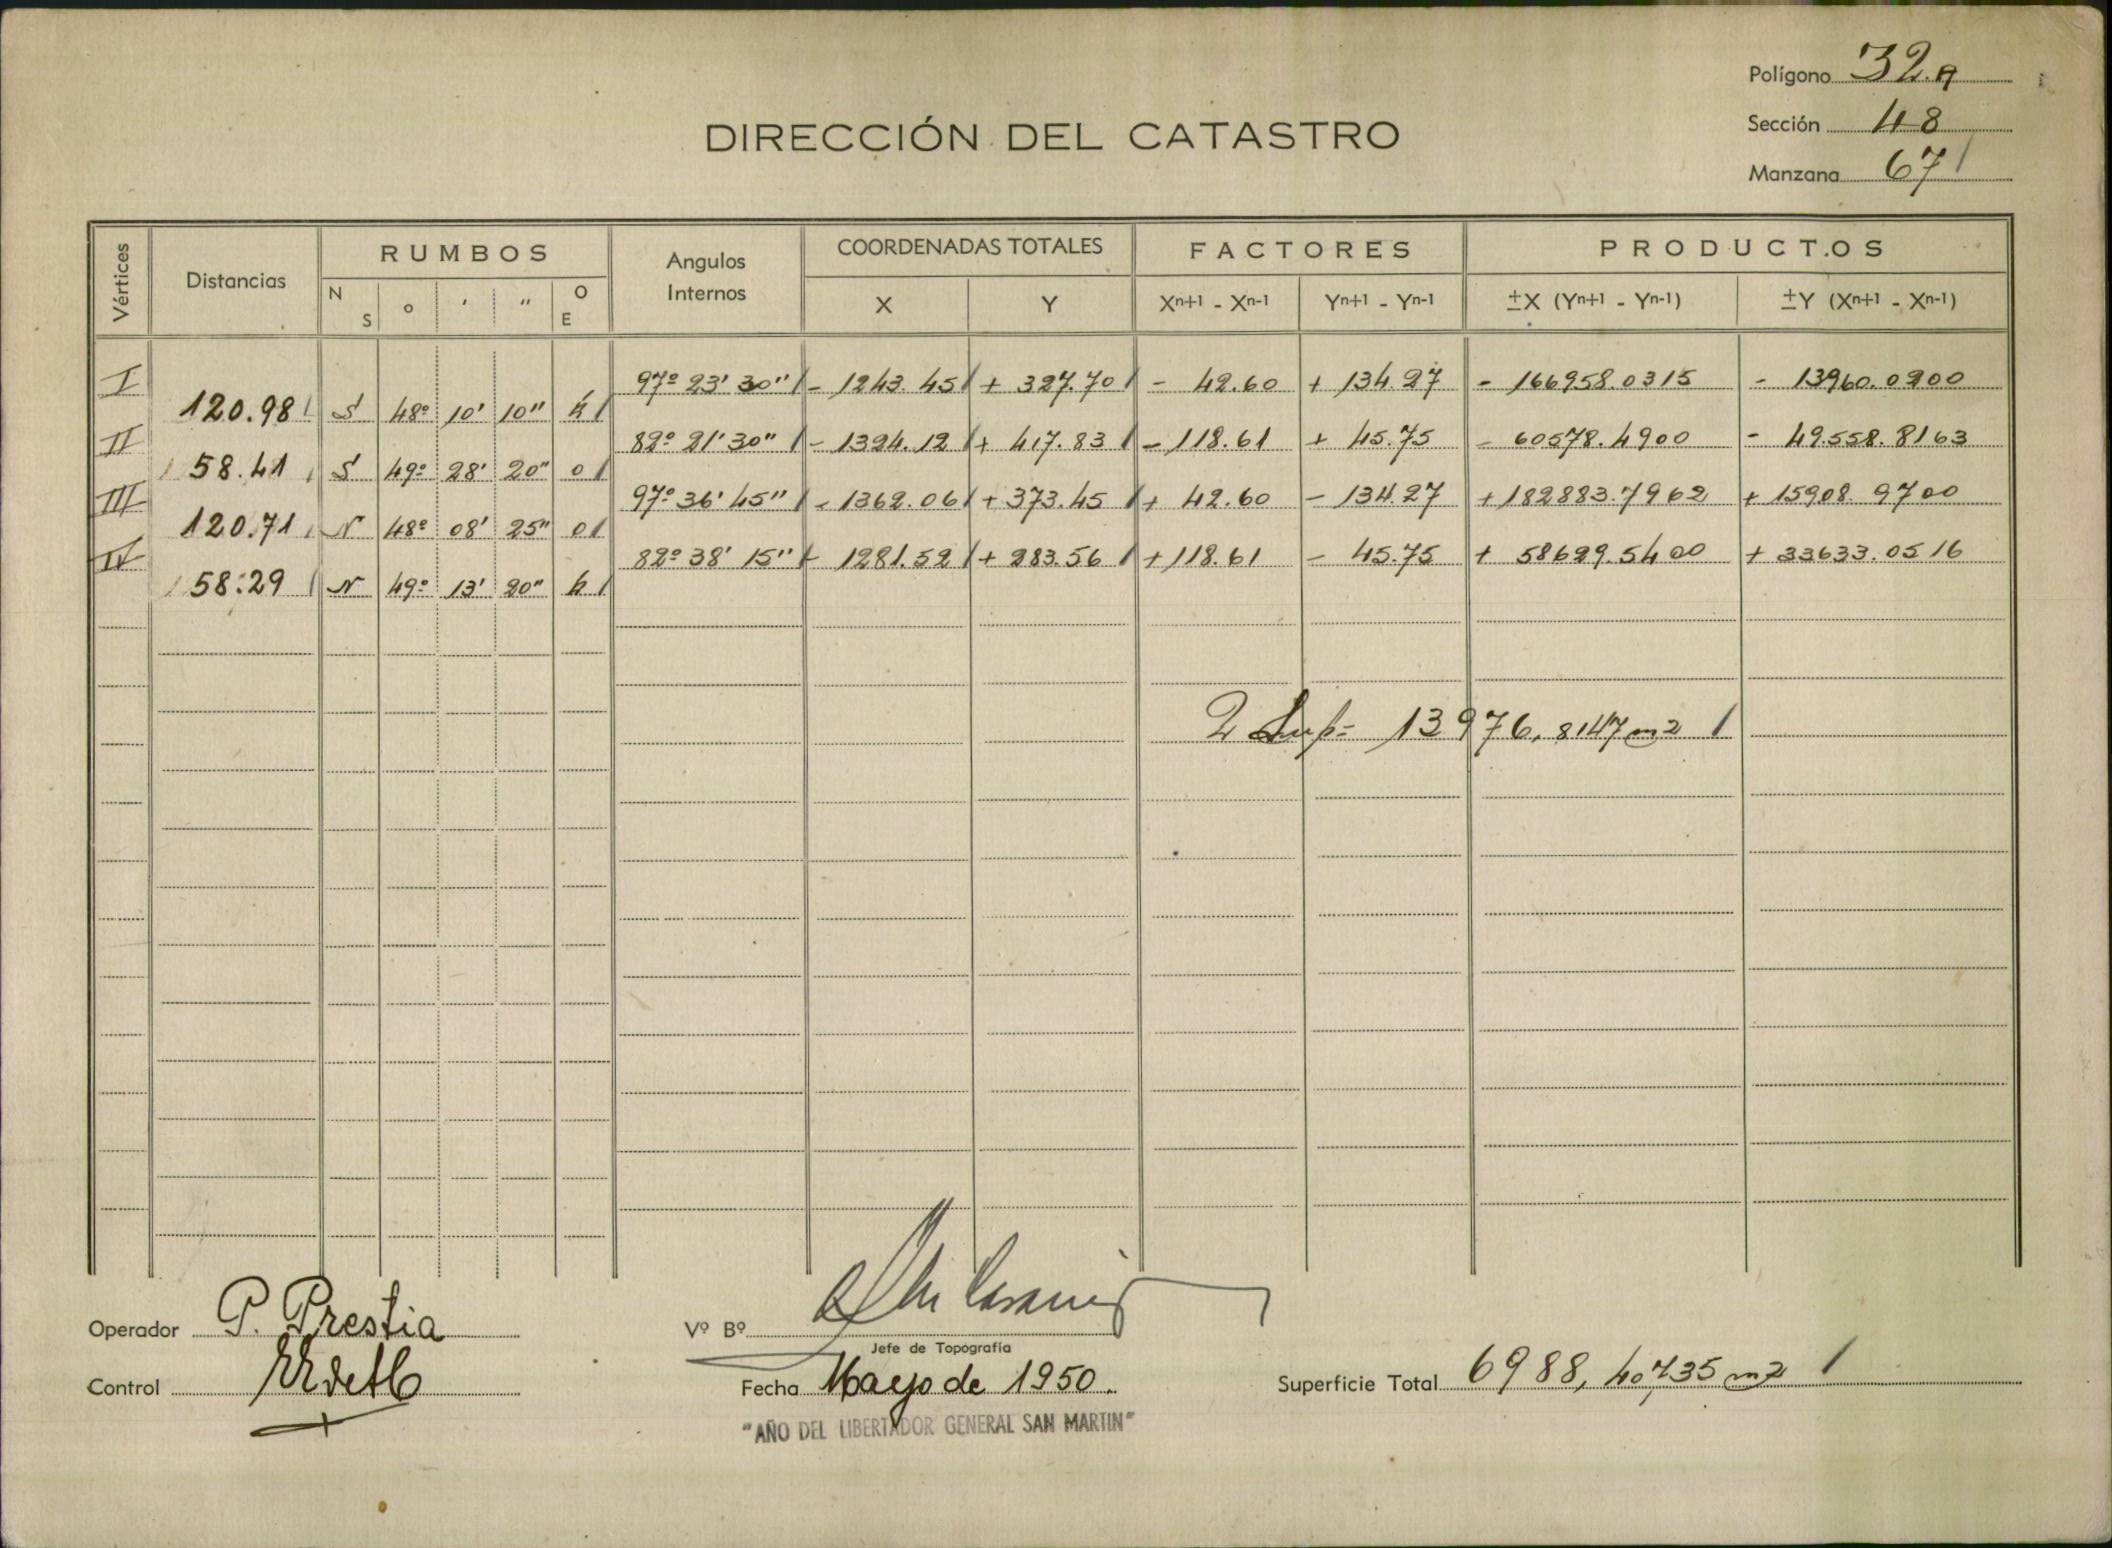 Polígono 32.A
Sección 48
Manzana 67 /
DIRECCIÓN DEL CATASTRO
Vértices Distancias RUMBOS Angulos Internos COORDENADAS TOTALES FACTORES PRODUCTOS
N S o ' " O E X Y Xn+1 - Xn-1 Yn+1 - Yn-1 ±X (Yn+1 - Yn-1) ±Y (Xn+1 - Xn-1)
I 97º 23' 30" / - 1243.45 / + 327.70 / - 42.60 + 134.27 - 166958.0315 - 13960.0200
120.98 / S 48º 10' 10" E /
II 82º 21' 30" / - 1324.12 / + 417.83 / - 118.61 + 45.75 - 60578.4900 - 49.558.8163
58.41 / S 49º 28' 20" O /
III 97º 36' 45" / - 1362.06 / + 373.45 / + 42.60 - 134.27 + 182883.7962 + 15908.9700
120.71 / N 48º 08' 25" O /
IV 82º 38' 15" / - 1281.52 / + 283.56 / + 118.61 - 45.75 + 58629.5400 + 33633.0516
58.29 / N 49º 13' 20" E /
2 Sup= 13976,8147 m2 /
Operador P. Prestia
Vº Bº
Jefe de Topografía
Control
Fecha Mayo de 1950.
Superficie Total 6988,40735 m2 /
"AÑO DEL LIBERTADOR GENERAL SAN MARTIN"